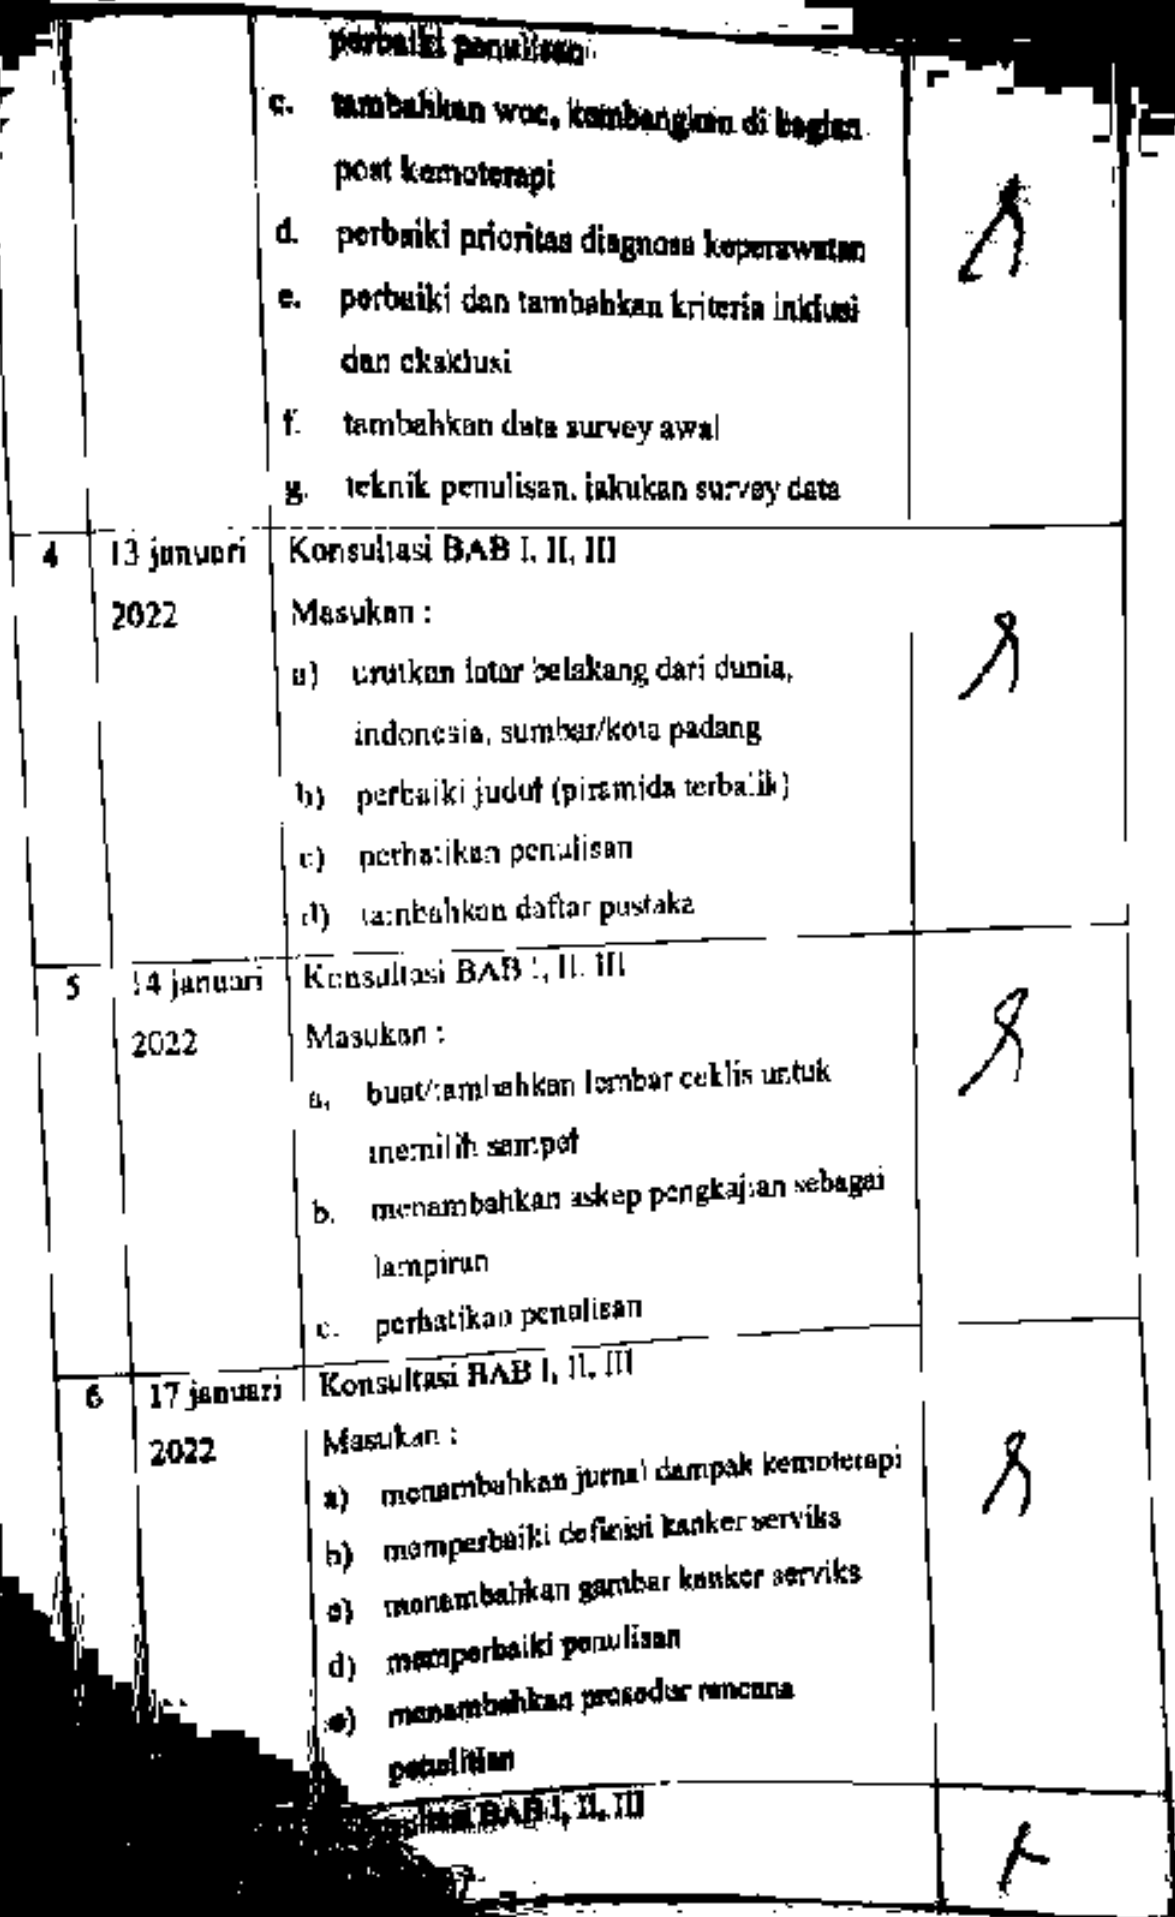 perbaiki penulisan
c. tambahkan woc, kembangkan di bagian
post kemoterapi
d. perbaiki prioritas diagnosa keperawatan
e. perbaiki dan tambahkan kriteria inklusi
dan eksklusi
f. tambahkan data survey awal
g. teknik penulisan, lakukan survey data
4 13 januari Konsultasi BAB I, II, III
2022 Masukan :
a) urutkan latar belakang dari dunia,
indonesia, sumbar/kota padang
b) perbaiki judul (piramida terbalik)
c) perhatikan penulisan
d) tambahkan daftar pustaka
5 14 januari Konsultasi BAB I, II, III
2022 Masukan :
a. buat/tambahkan lembar ceklis untuk
memilih sampel
b. menambahkan askep pengkajian sebagai
lampiran
c. perhatikan penulisan
6 17 januari Konsultasi BAB I, II, III
2022 Masukan :
a) menambahkan jurnal dampak kemoterapi
b) memperbaiki definisi kanker serviks
c) menambahkan gambar kanker serviks
d) memperbaiki penulisan
e) menambahkan prosedur rencana
penelitian
BAB I, II, III